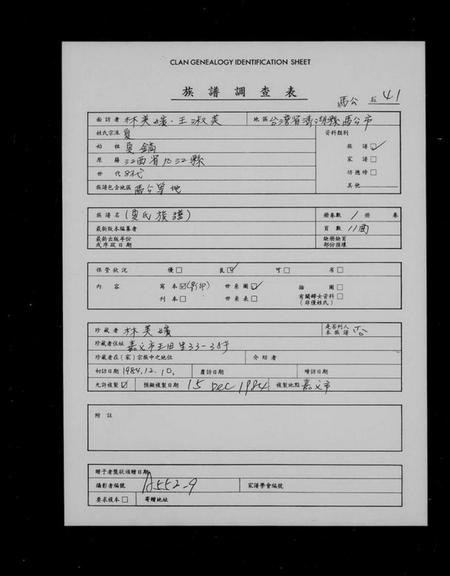 CLAN GENEALOGY IDENTIFICATION SHEET
族譜調查表
馬公 41
面訪者 林美嬪、王淑美 地區 台灣省澎湖縣馬公市
姓氏宗派 夏 資料類別
始祖 夏鎬 族譜 ☑
原籍 江西省 縣 家譜 □
世代 8代 功德榜 □
族譜包含地區 馬公等地 其他
族譜名 (夏氏族譜) 冊卷數 / 冊 卷
最新版本編著者 頁數 11面
最新出版年份 缺冊缺頁
或序跋日期 部份指讓
保管狀況 優 □ 良 ☑ 可 □ 劣 □
內容 寫本 ☑ (影印) 世系圖 ☑ 插圖 □
刊本 □ 世系表 □ 有關婦女資料 □
(非僅姓氏)
珍藏者 林美嬪 是否列入本族譜 否
珍藏者住址 嘉义市玉田里33-38号
珍藏者在(家)宗族中之地位 介紹者
初訪日期 1984.12.10. 復訪日期 增訪日期
允許複製 ☑ 預擬複製日期 15 Dec 1984 複製地點 嘉义市
附註
贈予者獎狀頒贈日期
攝影者編號 A552-9 家譜學會編號
要求複本 □ 寄贈地址